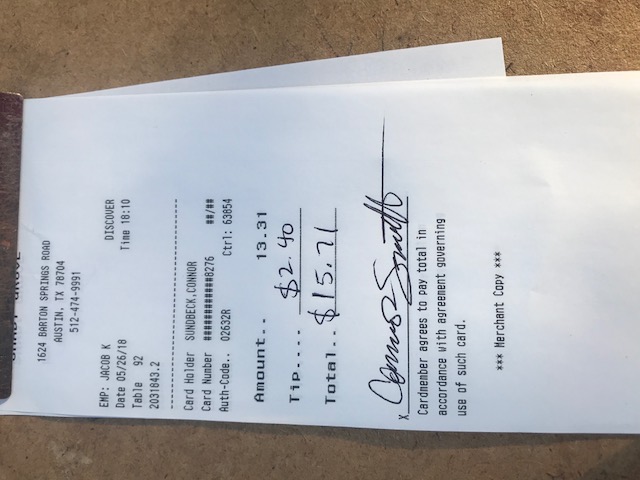 SHADY GROVE
1624 BARTON SPRINGS ROAD
AUSTIN, TX 78704
512-474-9991
EMP: JACOB K DISCOVER
Date 05/26/18 Time 18:10
Table 92
2031843.2
Card Holder SUNDBECK,CONNOR
Card Number ############8276 ##/##
Auth-Code.. 02632R Ctrl: 63854
Amount.. 13.31
Tip.... $2.40
Total.. $15.71
X Connor
Cardmember agrees to pay total in
accordance with agreement governing
use of such card.
*** Merchant Copy ***